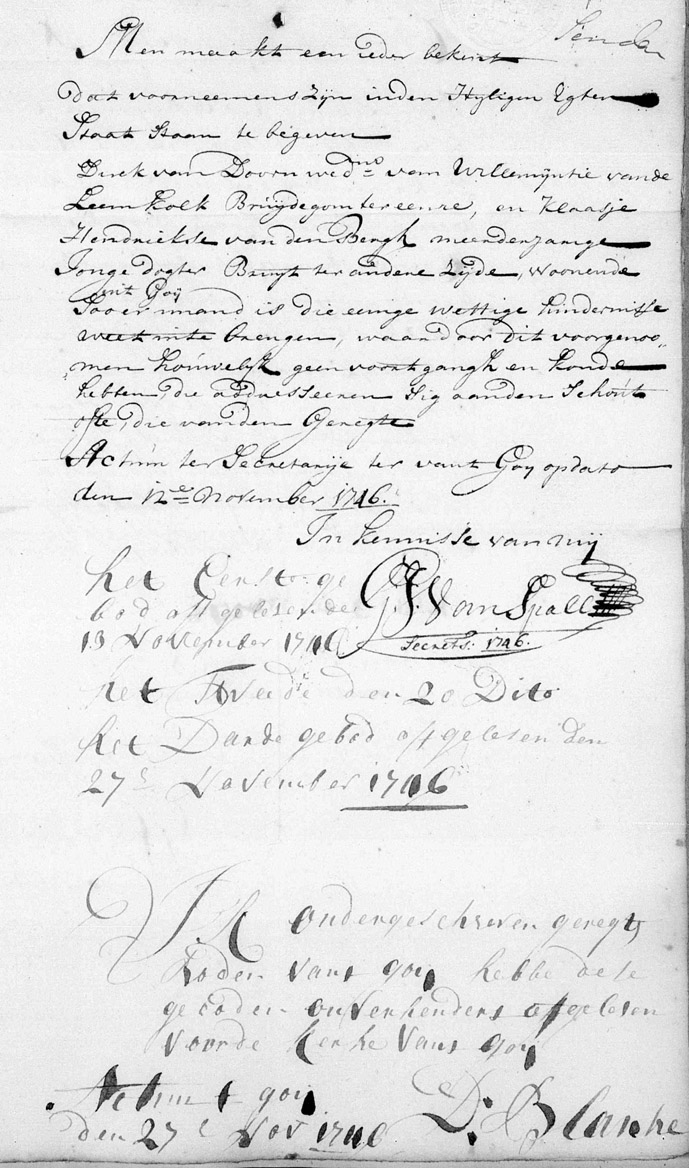 Men maakt een ieder bekent
dat voorneemens zijn inden Hyligen Egten
Staat Staan te begeven
Dirck van Doorn wedno van Willemijntie vande
Leemkolk Bruydegom ter eenre, en Klaasje
Hendriekse van den Bergh meerderjarige
Jonge dogter Bruyt ter andere Zyde, woonende
int Goij
Soo er imand is die eenige wettige hindernisse
weet inte brengen, waar door dit voorgenoo„
„men houwelyk geen voortgangh en konde
hebben, die addresseeren sig aanden Schout
ofte die vanden Geregte
Actum ter Secretarije ter vant Goy op dato
den 12e November 1746.
In kennisse van mij
G J Van Spall
Secrets: 1746.
het Eerste ge
bod afgelesen de
13 November 1746
het Tweede den 20 Dito
het Darde gebod afgelesen den
27e November 1746
Ik ondergeschreven geregts
boden vant goy hebbe dese
geboden onverhendert afgelesen
voor de kerke vant goy
Actum t goy
den 27e Nov 1746
D: Blanke